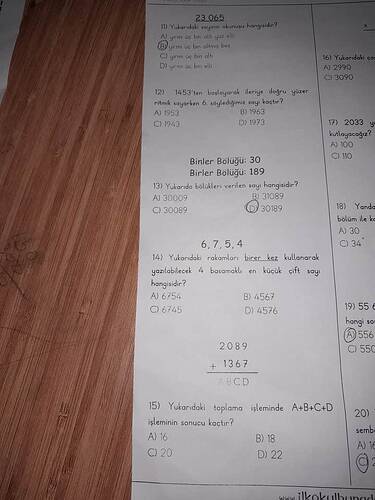 23 065
11) Yukarıdaki sayının okunuşu hangisidir?
A) yirmi üç bin altı yüz elli
B) yirmi üç bin altmış beş
C) yirmi üç bin altı
D) yirmi üç bin elli
12) 1453'ten başlayarak ileriye doğru yüzer
ritmik sayarken 6. söylediğimiz sayı kaçtır?
A) 1953 B) 1963
C) 1943 D) 1973
Binler Bölüğü: 30
Birler Bölüğü: 189
13) Yukarıda bölükleri verilen sayı hangisidir?
A) 30009 B) 31089
C) 30089 D) 30189
6, 7, 5, 4
14) Yukarıdaki rakamları birer kez kullanarak
yazılabilecek 4 basamaklı en küçük çift sayı
hangisidir?
A) 6754 B) 4567
C) 6745 D) 4576
2089
+ 1367
ABCD
15) Yukarıdaki toplama işleminde A+B+C+D
işleminin sonucu kaçtır?
A) 16 B) 18
C) 20 D) 22
x
16) Yukarıdaki
A) 2990
C) 3090
17) 2033
kutlayacağız?
A) 100
C) 110
18) Yanda
bölüm ile
A) 30
C) 34
19) 55 6
hangi
A) 556
C) 550
20)
A) 16
C) 2